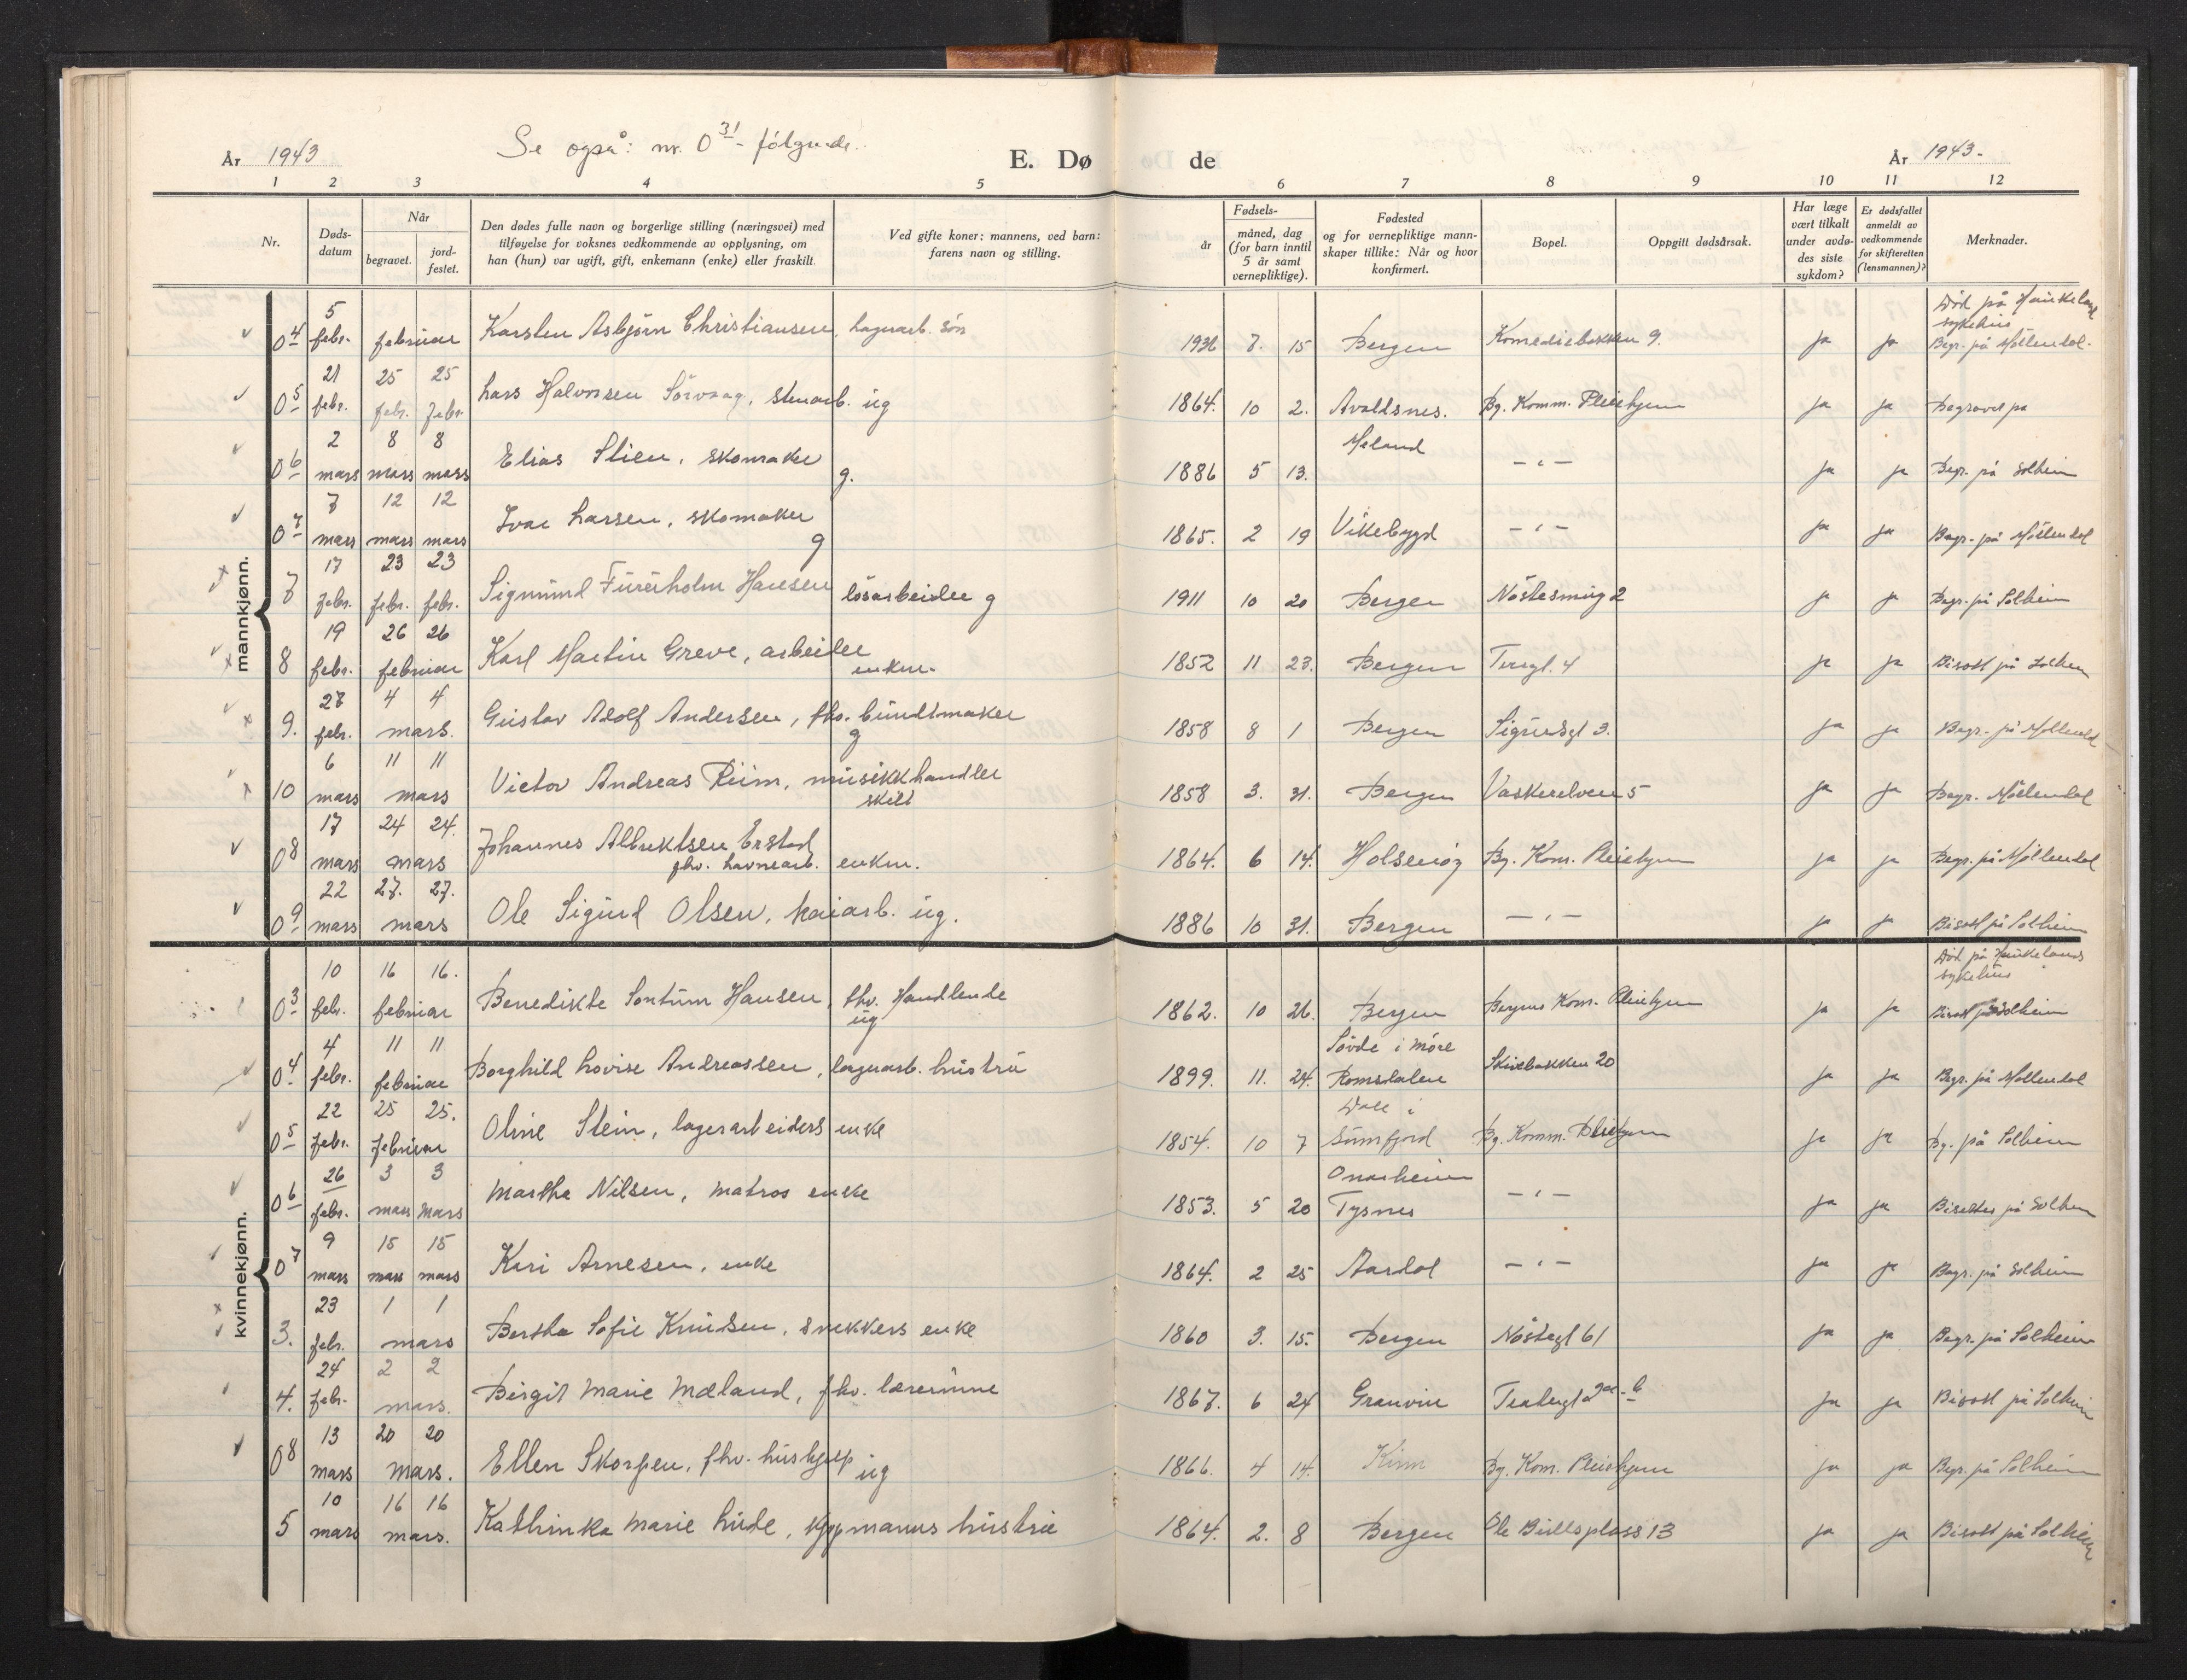 Se også: nr. 0 31 - følgende.
År 1943
E. Dø
de
År 1943.
1 2 3 4 5 6 7 8 9 10 11 12
Nr.
Døds-
datum
Når
begravet.
jord-
festet.
Den dødes fulle navn og borgerlige stilling (næringsvei) med
tilføyelse for voksnes vedkommende av opplysning, om
han (hun) var ugift, gift, enkemann (enke) eller fraskilt.
Ved gifte koner: mannens, ved barn:
farens navn og stilling.
Fødsels-
år
måned, dag
(for barn inntil
5 år samt
vernepliktige).
Fødested
og for vernepliktige mann-
skaper tillike: Når og hvor
konfirmert.
Bopel.
Oppgitt dødsårsak.
Har læge
vært tilkalt
under avdø-
des siste
sykdom?
Er dødsfallet
anmeldt av
vedkommende
for skifteretten
(lensmannen)?
Merknader.
mannkjønn.
5 Død på Haukeland
sykehus
04 febr. februar Karsten Asbjørn Christiansen, lagerarb. søn 1936 7. 15 Bergen Komediebakken 9. ja ja Begr. på Møllendal.
21 25 25
05 febr. febr. febr. Lars Halvorsen Sørvaag, stenarb. ug 1864. 10 2. Avaldsnes. Bg. Komm. Pleiehjem ja ja Begravet pa
2 8 8 Meland
06 mars mars mars Elias Slien, skomaker g. 1886 5 13. - " - ja ja Begr. på Solheim
7 12 12
07 mars mars mars Ivar Larsen, skomaker g 1865. 2 19 Vikebygd - " - ja ja Begr. på Møllendal
17 23 23
7 febr. febr. febr. Sigmund Hansen løsarbeider g 1911 10 20 Bergen Nøstesmug 2 ja ja Begr. på Solheim
19 26 26
8 febr. februar Karl Martin Greve, arbeider enkem. 1852 11 23. Bergen 4 ja ja Bisatt på Solheim
27 4 4
9. febr. mars. Gustav Adolf Andersen, fhv. bundtmaker g 1858 8 1 Bergen Sigurdsgt 3. ja ja Begr. på Møllendal
6 11 11
10 mars mars Victor Andreas Reim, musikkhandler skilt 1858 3. 31. Bergen Vaskerelven 5 ja ja Begr. Møllendal
17 24 24.
08 mars mars Johannes Albrektsen Erstad fhv. havnearb. enkem. 1864. 6 14. Holsenøy Bg. Kom. Pleiehjem ja ja Begr. på Møllendal
22 27. 27.
09 mars mars Ole Sigurd Olsen, kaiarb. ug. 1886 10 31. Bergen - " - ja ja Bisatt på Solheim
kvinnekjønn.
10 16 16. Død på Haukelands
sykehus
03 febr. februar Benedikte Sontum Hansen, fhv. Handlende ug 1862. 10 26. Bergen Bergens Kom. Pleiehjem ja ja Bisatt på Solheim
4 11 11 Søvde i Møre
04 febr. februar Borghild Lovise Andreassen, lagerarb. hustru 1899. 11. 24. Romsdalen Skivebakken 20 ja ja Begr. på Møllendal
22 25 25. Dale i
05 febr. februar Oline Stein, lagerarbeiders enke 1854. 10 7 Sunnfjord Bg. Komm. Pleiehjem ja ja Bg. på Solheim
26 3 3 Onarheim
06 febr. mars mars Martha Nilsen, matros enke 1853. 5 20 Tysnes - " - ja ja Bisettes på Solheim
9 15 15
07 mars mars mars Kari Arnesen, enke 1864. 2 25 Aardal - " - ja ja Begr. på Solheim
23 1 1
3. febr. mars Bertha Sofie Knudsen, snekkers enke 1860 3. 15. Bergen Nøstegt 61 ja ja Begr. på Solheim
24 2 2
4. febr. mars. Birgit Marie Mæland, fhv. lærerinne 1867. 6 24 Granvin Teatergt 2 a-b ja ja Bisatt på Solheim
13 20 20
08 mars mars. Ellen Skorpen, fhv. hushjelp ug 1866. 4 14. Kinn Bg. Kom. Pleiehjem ja ja Begr. på Solheim
10 16 16
5 mars mars. Kathinka Marie Lude, kjøpmanns hustru 1864. 2. 8 Bergen Ole Bullsplass 13 ja ja Bisatt på Solheim